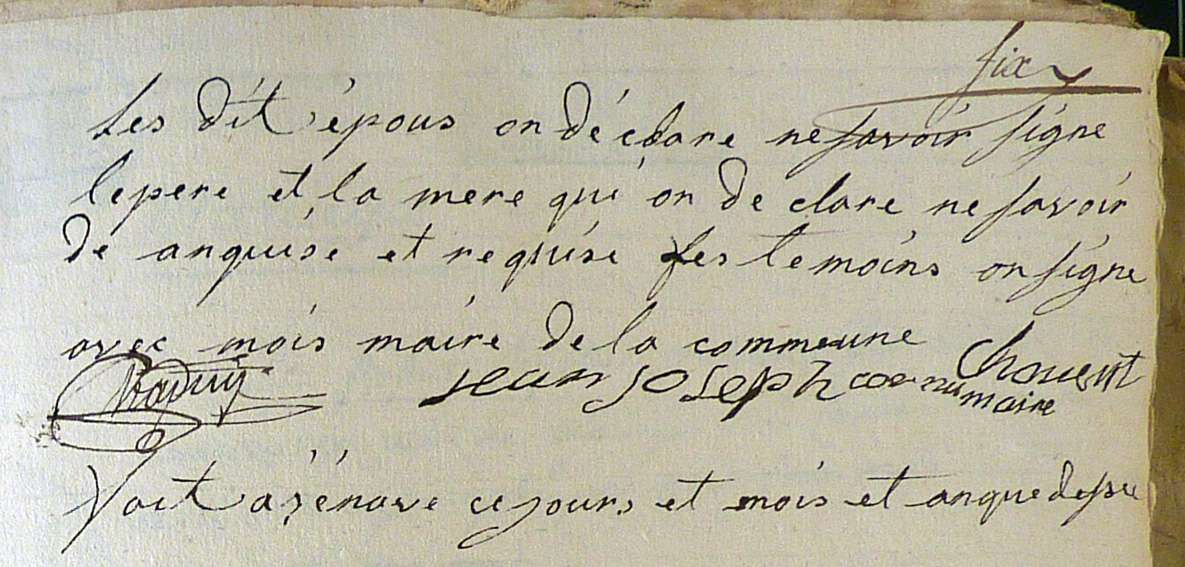 six
Les dit épous on déclare ne savoir signe
le pere et la mere qui on de clare ne savoir
de anquise et requise les temoins on signe
avec mois maire de la commeune
jean joseph Chouent
maire
fait a sénave ce jours et mois et anque desu